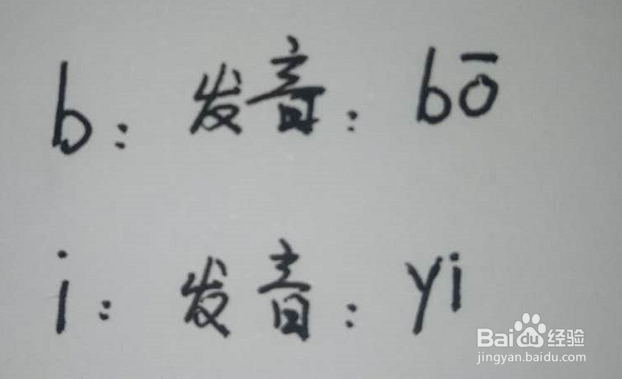 b：发音：bō
i：发音：yi
Baidu经验
jingyan.baidu.com